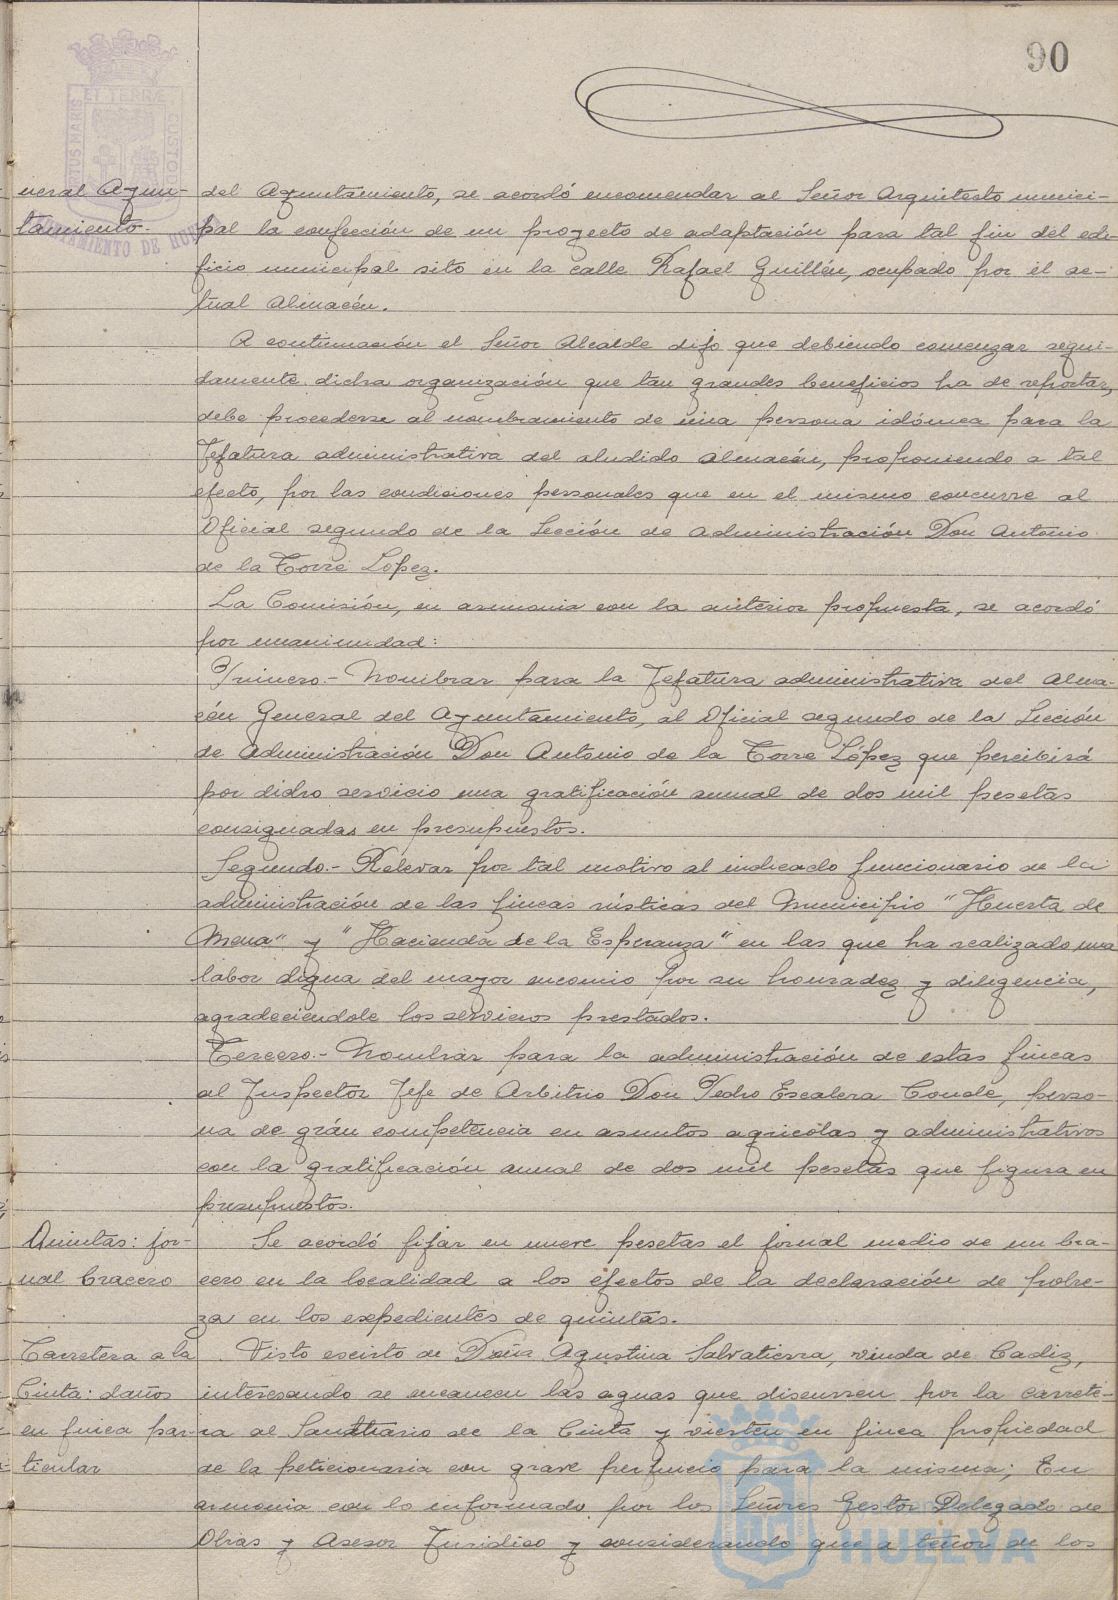 90
neral Ayun-
tamiento.
del Ayuntamiento, se acordó encomendar al Señor Arquitecto munici-
pal la confección de un proyecto de adaptación para tal fin del edi-
ficio municipal sito en la calle Rafael Guillén, ocupado por el ac-
tual Almacén.
A continuación el Señor Alcalde dijo que debiendo comenzar segui-
damente dicha organización que tan grandes beneficios ha de reportar,
debe procederse al nombramiento de una persona idónea para la
Jefatura administrativa del aludido Almacén, proponiendo a tal
efecto, por las condiciones personales que en el mismo concurre al
Oficial segundo de la Sección de Administración Don Antonio
de la Torre Lopez.
La Comisión, en armonia con la anterior propuesta, se acordó
por unanimidad:
Primero.- Nombrar para la Jefatura administrativa del Alma-
cén General del Ayuntamiento, al Oficial segundo de la Sección
de Administración Don Antonio de la Torre López que percibirá
por dicho servicio una gratificación anual de dos mil pesetas
consignadas en presupuestos.
Segundo.- Relevar por tal motivo al indicado funcionario de la
administración de las fincas rústicas del Municipio "Huerta de
Mena" y "Hacienda de la Esperanza" en las que ha realizado una
labor digna del mayor encomio por su honradez y diligencia,
agradeciendole los servicios prestados.
Tercero.- Nombrar para la administración de estas fincas
al Inspector Jefe de Arbitrio Don Pedro Escalera Conde, perso-
na de grán competencia en asuntos agricolas y administrativos
con la gratificación anual de dos mil pesetas que figura en
presupuestos.
Quintas: jor-
nal bracero
Se acordó fijar en nueve pesetas el jornal medio de un bra-
cero en la localidad a los efectos de la declaración de pobre-
za en los expedientes de quintas.
Carretera a la
Cinta: daños
en finca par-
ticular
Visto escrito de Doña Agustina Salvatierra, viuda de Cadiz,
interesando se encaucen las aguas que discurren por la carrete-
ra al Santuario de la Cinta y vierten en finca propiedad
de la peticionaria con grave perjuicio para la misma; En
armonia con lo informado por los Señores Gestor Delegado de
Obras y Asesor Juridico y considerando que a tenor de los
ET TERRÆ
CUSTODIA
AYUNTAMIENTO DE HUELVA
HUELVA